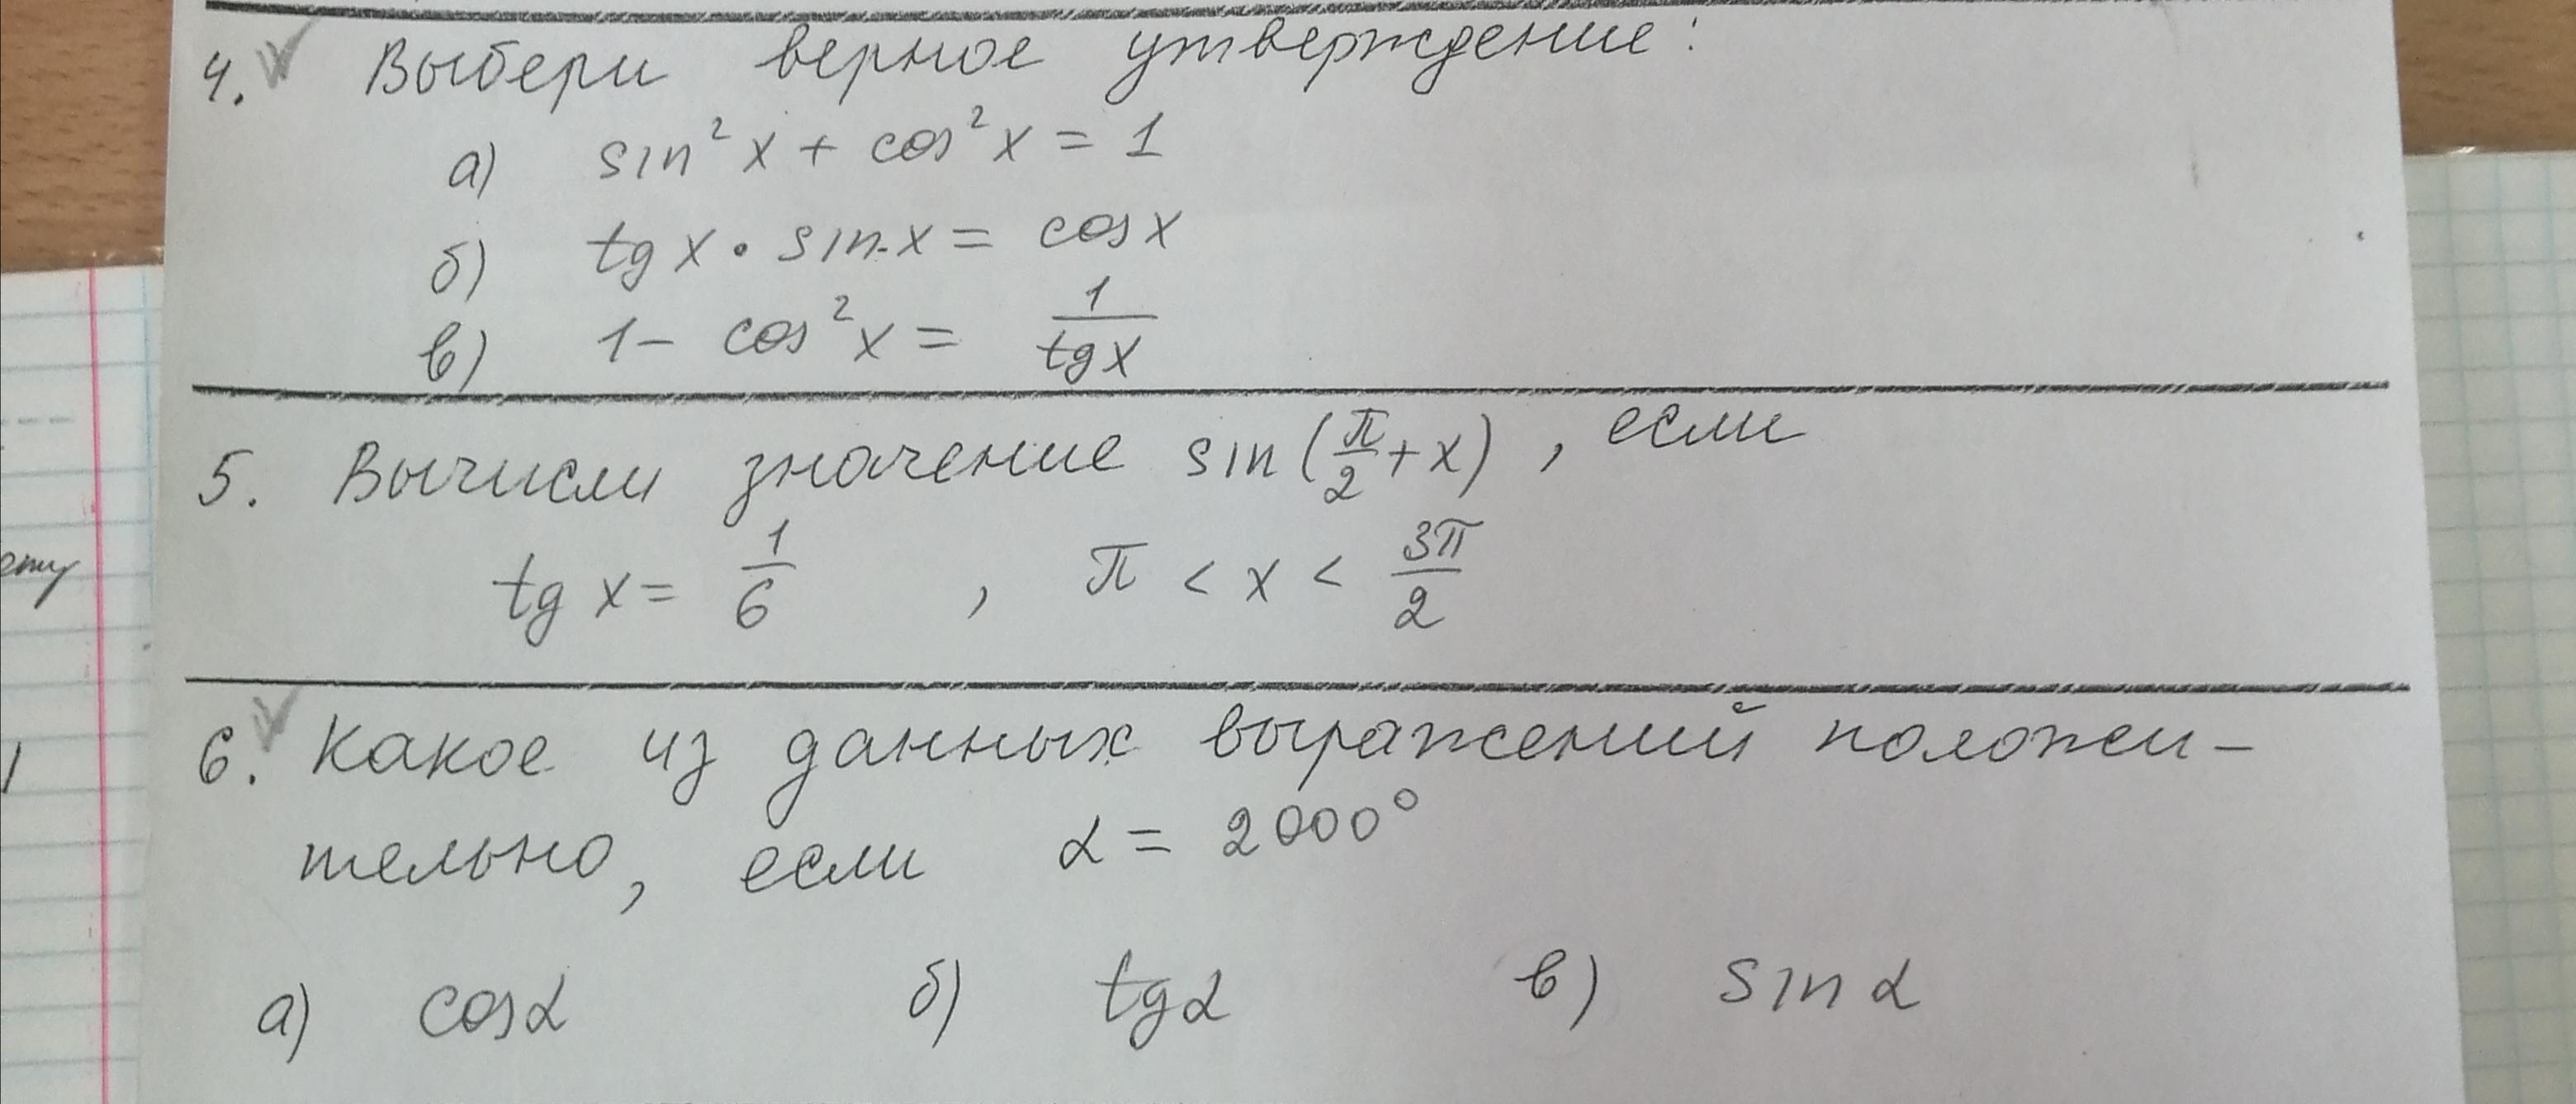 4. Выбери верное утверждение:
а) sin²x + cos²x = 1
б) tg x · sin x = cos x
в) 1 - cos²x = 1/tg x
5. Вычисли значение sin(π/2 + x), если
tg x = 1/6 , π < x < 3π/2
6. Какое из данных выражений положи-
тельно, если α = 2000°
а) cosα б) tgα в) sin α